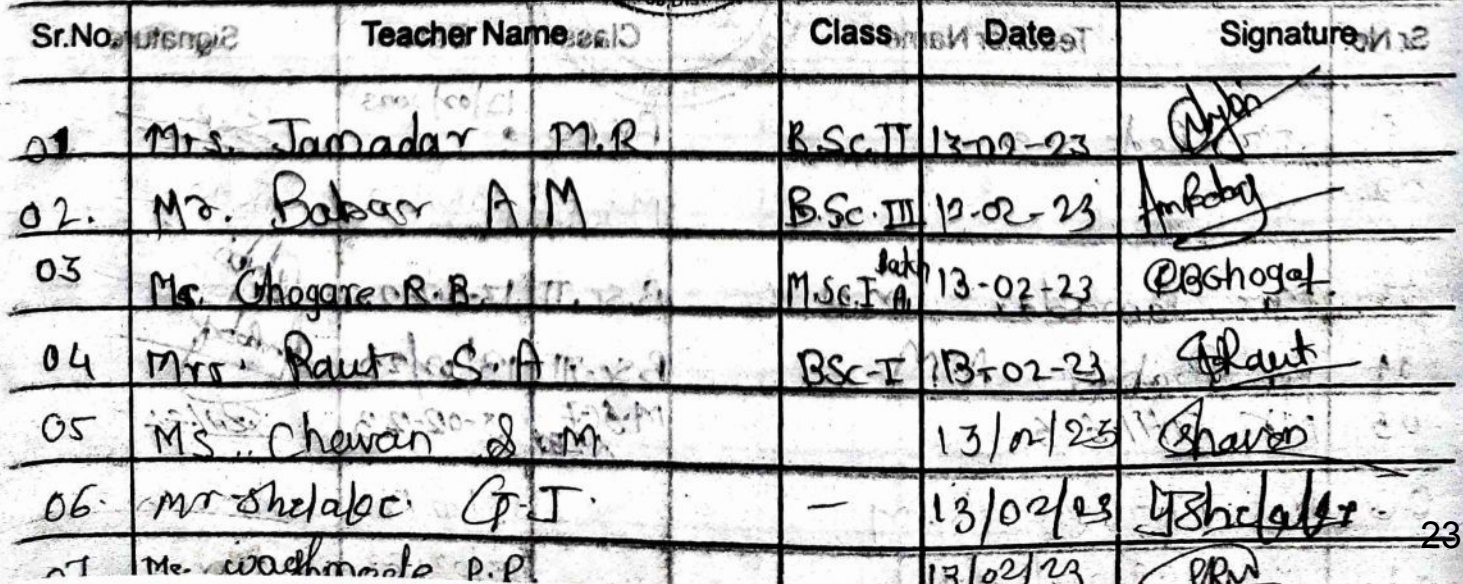 Sr.No. Teacher Name Class Date Signature
01 Mrs. Jamadar M.R. B.Sc.II 13-02-23
02. Mr. Babar A M B.Sc.III 13-02-23 AmBabar
03 Ms. Ghogare R.B. M.Sc.I 13-02-23 RBGhogare
04 Mrs. Raut S.A BSc-I 13-02-23 Raut
05 Ms. Chavan S M 13/02/23 Chavan
06. Mr Shelake G.J. — 13/02/23 GJShelake
07 P.P. 13/02/23
23